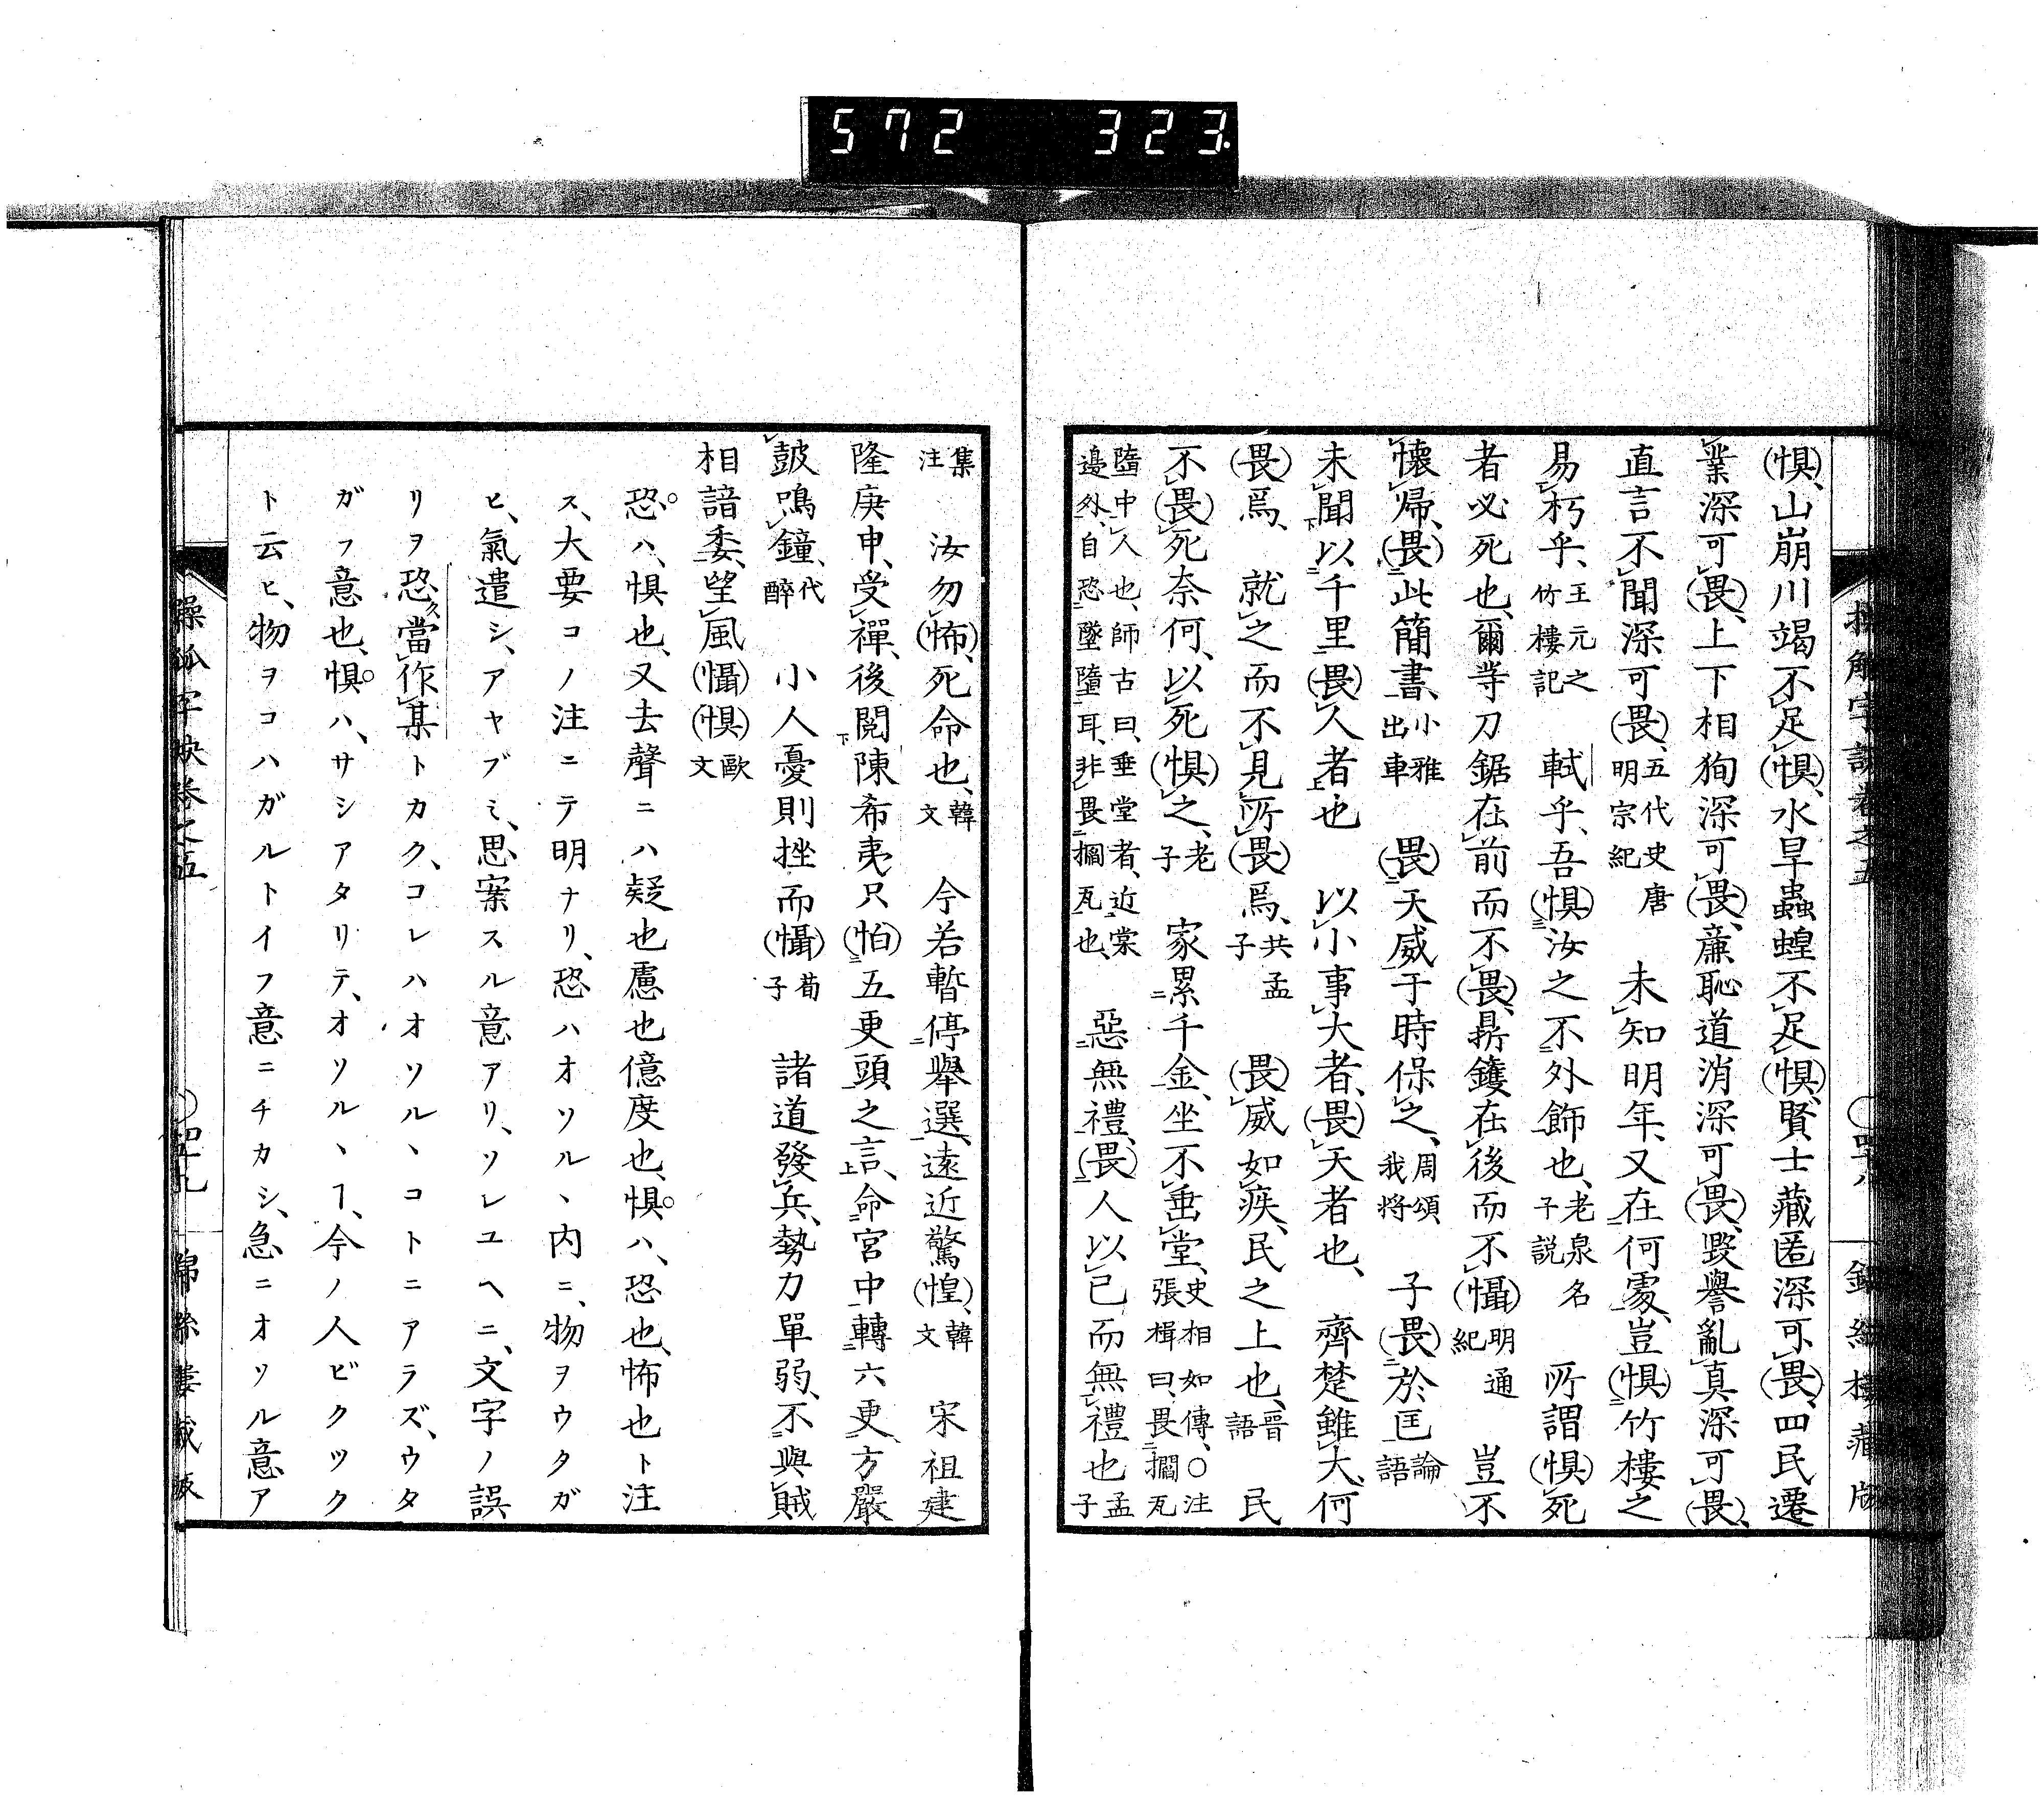 572 323.
(惧)、山崩川竭不足(惧)、水旱蟲蝗不足(惧)、賢士藏匿深可(畏)、四民遷
業深可(畏)、上下相狥深可(畏)、廉恥道消深可(畏)、毀譽亂真深可(畏)、
直言不聞深可(畏)、五代史唐明宗紀 未知明年、又在何處、豈(惧)竹樓之
易朽乎、王元之竹樓記 軾乎、吾(惧)汝之不外飾也、老泉名子説 所謂(惧)死
者必死也、爾等刀鋸在前而不(畏)、鼎鑊在後而不(懾)明通紀 豈不
懷歸、(畏)此簡書、小雅出車 (畏)天威于時保之、周頌我將 子(畏)於匡論語
未聞以千里(畏)人者也 以小事大者、(畏)天者也、 齊楚雖大、何
(畏)焉、 就之而不見所(畏)焉、共孟子 (畏)威如疾、民之上也、晋語 民
不(畏)死奈何、以死(惧)之、老子 家累千金、坐不垂堂、史相如傳、○注張楫曰、畏擱瓦
墮中人也、師古曰、垂堂者、近棠邊外、自恐墜墮耳、非畏擱瓦也、 惡無禮、(畏)人以已而無禮也孟子
集注 汝勿(怖)、死命也、韓文 今若暫停舉選、遠近驚(惶)、韓文 宋祖建
隆庚申、受禪、後閲陳希夷只(怕)五更頭之言、命宮中轉六更方嚴
鼓鳴鐘、代醉 小人憂則挫而(懾)荀子 諸道發兵、勢力單弱、不與賊
相諳委、望風(懾)(惧)歐文
恐ハ、惧也、又去聲ニハ疑也慮也億度也、惧ハ、恐也、怖也ト注
ス、大要コノ注ニテ明ナリ、恐ハオソル、内ニ、物ヲウタガ
ヒ、氣遣シ、アヤブミ、思案スル意アリ、ソレユヘニ、文字ノ誤
リヲ恐當作某トカク、コレハオソルヽコトニアラズ、ウタ
ガフ意也、惧ハ、サシアタリテ、オソルヽヿ、今ノ人ビクツク
ト云ヒ、物ヲコハガルトイフ意ニチカシ、急ニオソル意ア